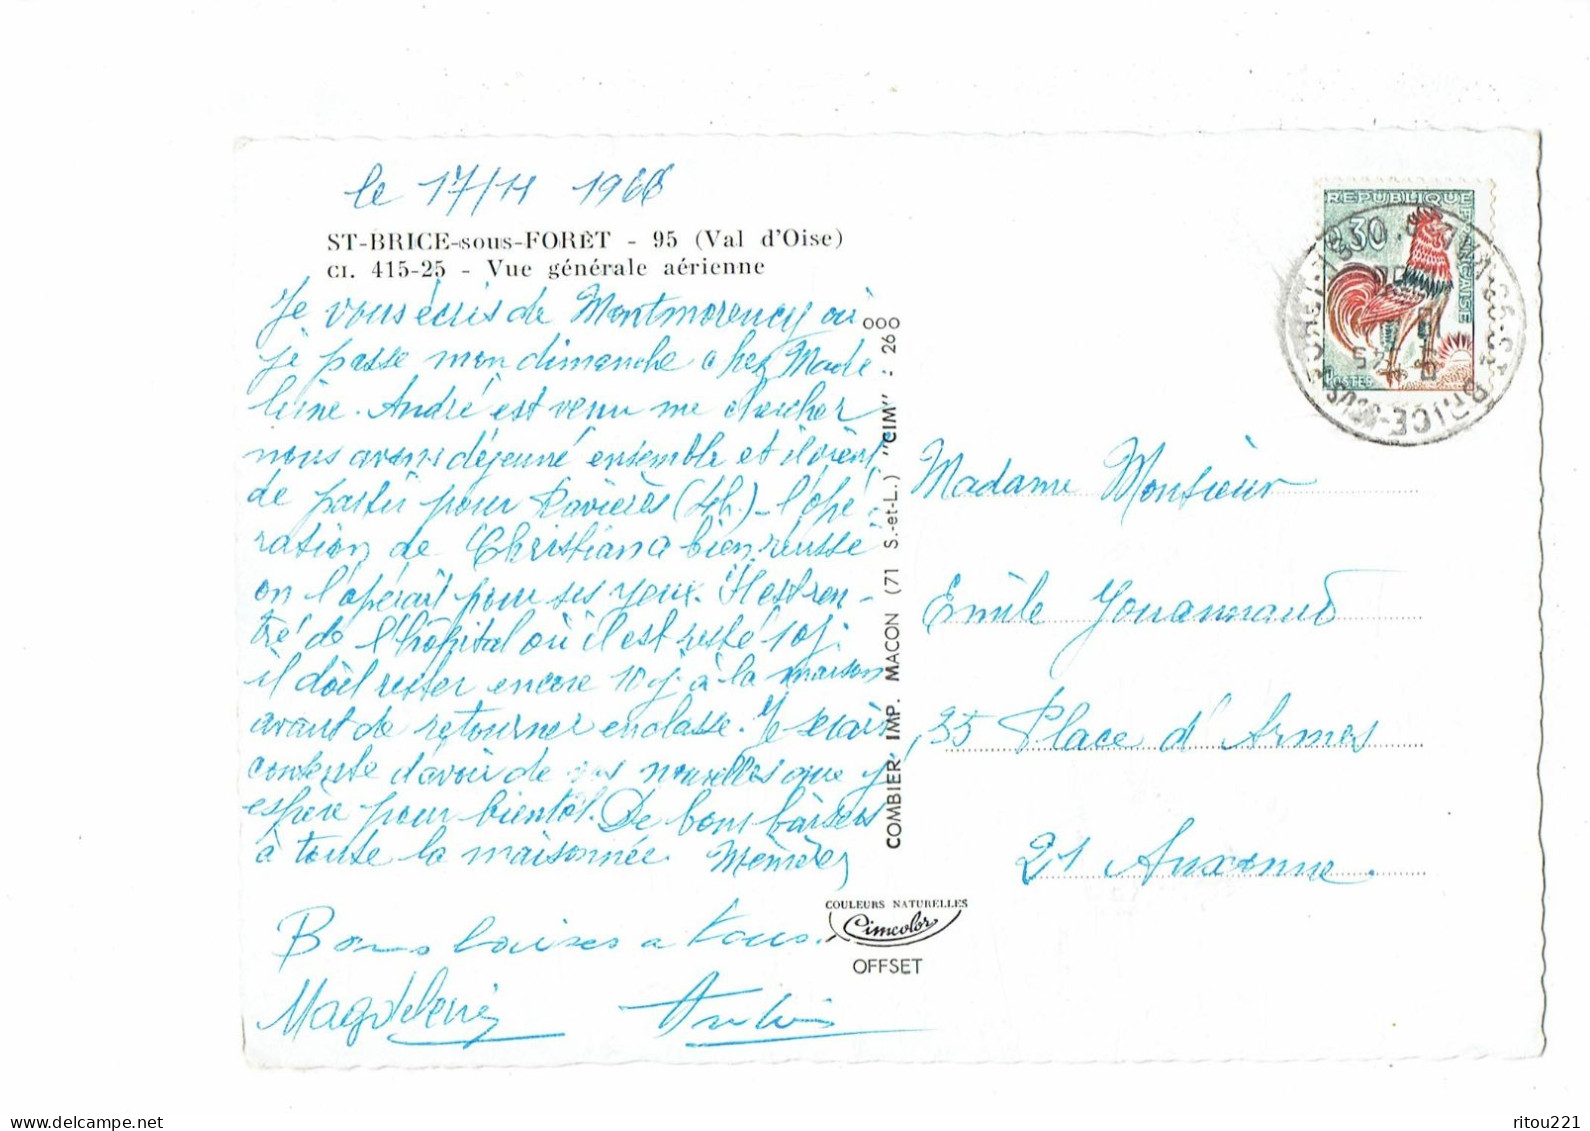 le 17/11 1966
ST-BRICE-sous-FORÊT - 95 (Val d'Oise)
CI. 415-25 - Vue générale aérienne
Je vous écris de Montmorency où
je passe mon dimanche chez Made-
leine. André est venu me chercher
nous avons déjeuné ensemble et il vient
de partir pour Ravières (4h.) - l'opé-
ration de Christian a bien réussi
on l'opérait pour ses yeux. Il est ren-
tré de l'hôpital où il est resté 10j.
il doit rester encore 10 j à la maison
avant de retourner en classe. Je serais
contente d'avoir de vos nouvelles que j'
espère pour bientôt. De bons baisers
à toute la maisonnée. Mémère
Bons baisers a tous.
Magdeleine
COMBIER IMP. MACON (71 S.-et-L.) "CIM" : 26 000
COULEURS NATURELLES
Cimcolor
OFFSET
REPUBLIQUE FRANÇAISE
0,30
POSTES
Madame Monsieur
Emile Jouannaud
35 Place d'Armes
21 Auxonne.
ritou221